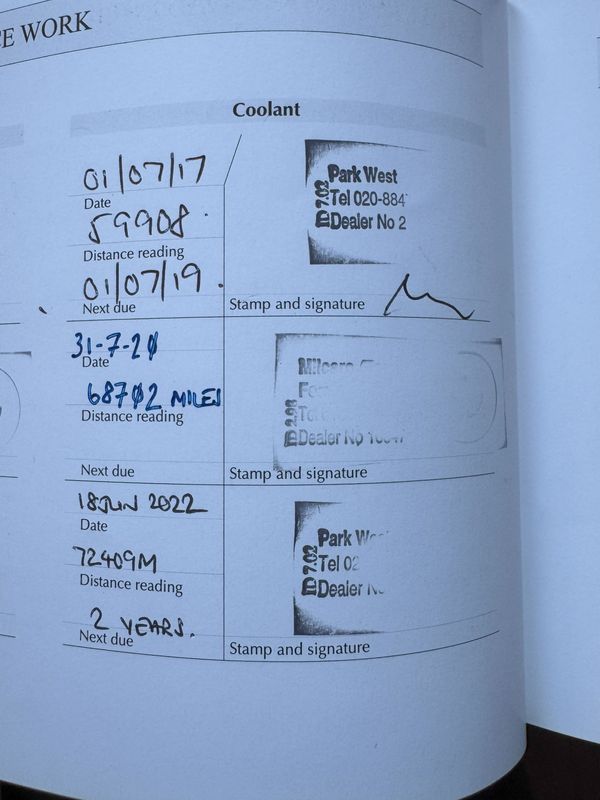 CE WORK
Coolant
01/07/17
Date
59908.
Distance reading
01/07/19.
Next due
Park West
Tel 020-884
Dealer No 2
D 7.02
Stamp and signature
31-7-20
Date
68702 MILES
Distance reading
Next due
D 2.98
Dealer No
Stamp and signature
18 JUN 2022
Date
72409M
Distance reading
2 YEARS.
Next due
Park We
Tel 02
Dealer
D 7.02
Stamp and signature